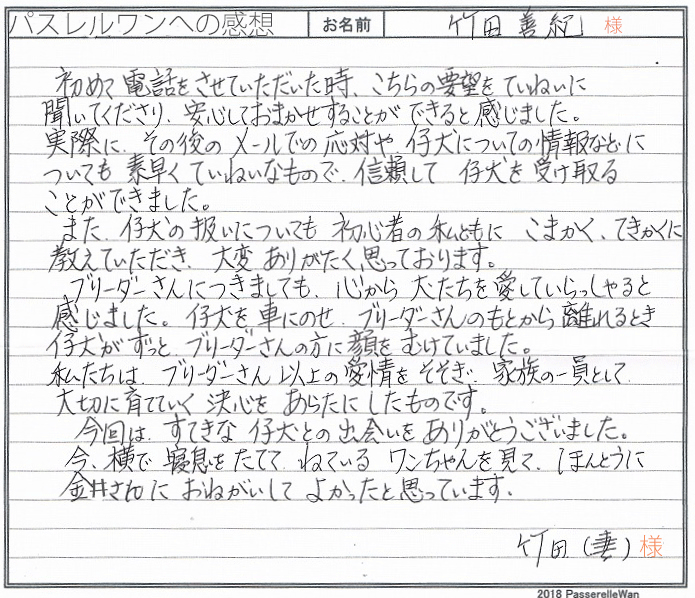 パスレルワンへの感想 お名前 竹田 善紀 様
初めて電話をさせていただいた時、こちらの要望をていねいに
聞いてくださり、安心しておまかせすることができると感じました。
実際に、その後のメールでの応対や、仔犬についての情報などに
ついても素早くていねいなもので、信頼して仔犬を受け取る
ことができました。
また、仔犬の扱いについても初心者の私ともに こまかく、てきかくに
教えていただき、大変ありがたく思っております。
ブリーダーさんにつきましても、心から犬たちを愛していらっしゃると
感じました。仔犬を車にのせ、ブリーダーさんのもとから離れるとき
仔犬がずっとブリーダーさんの方に顔をむけていました。
私たちは、ブリーダーさん以上の愛情をそそぎ、家族の一員として
大切に育てていく決心をあらたにしたものです。
今回は、すてきな仔犬との出会いをありがとうございました。
今、横で寝息をたてて、ねているワンちゃんを見て、ほんとうに
金井さんにおねがいしてよかったと思っています。
竹田(妻)様
2018 PasserelleWan